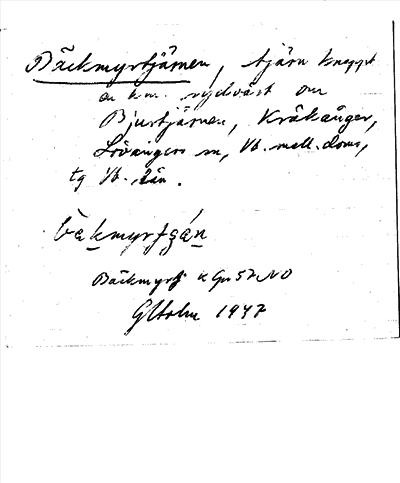 Bäckmyrtjärnen, tjärn knappt
en km. sydväst om
Bjurtjärnen, Kräkånger,
Lövångers sn, Vb. mell. doms,
tg Vb. län.
Bäckmyrtj K Gn 57 NO
GHolm 1947